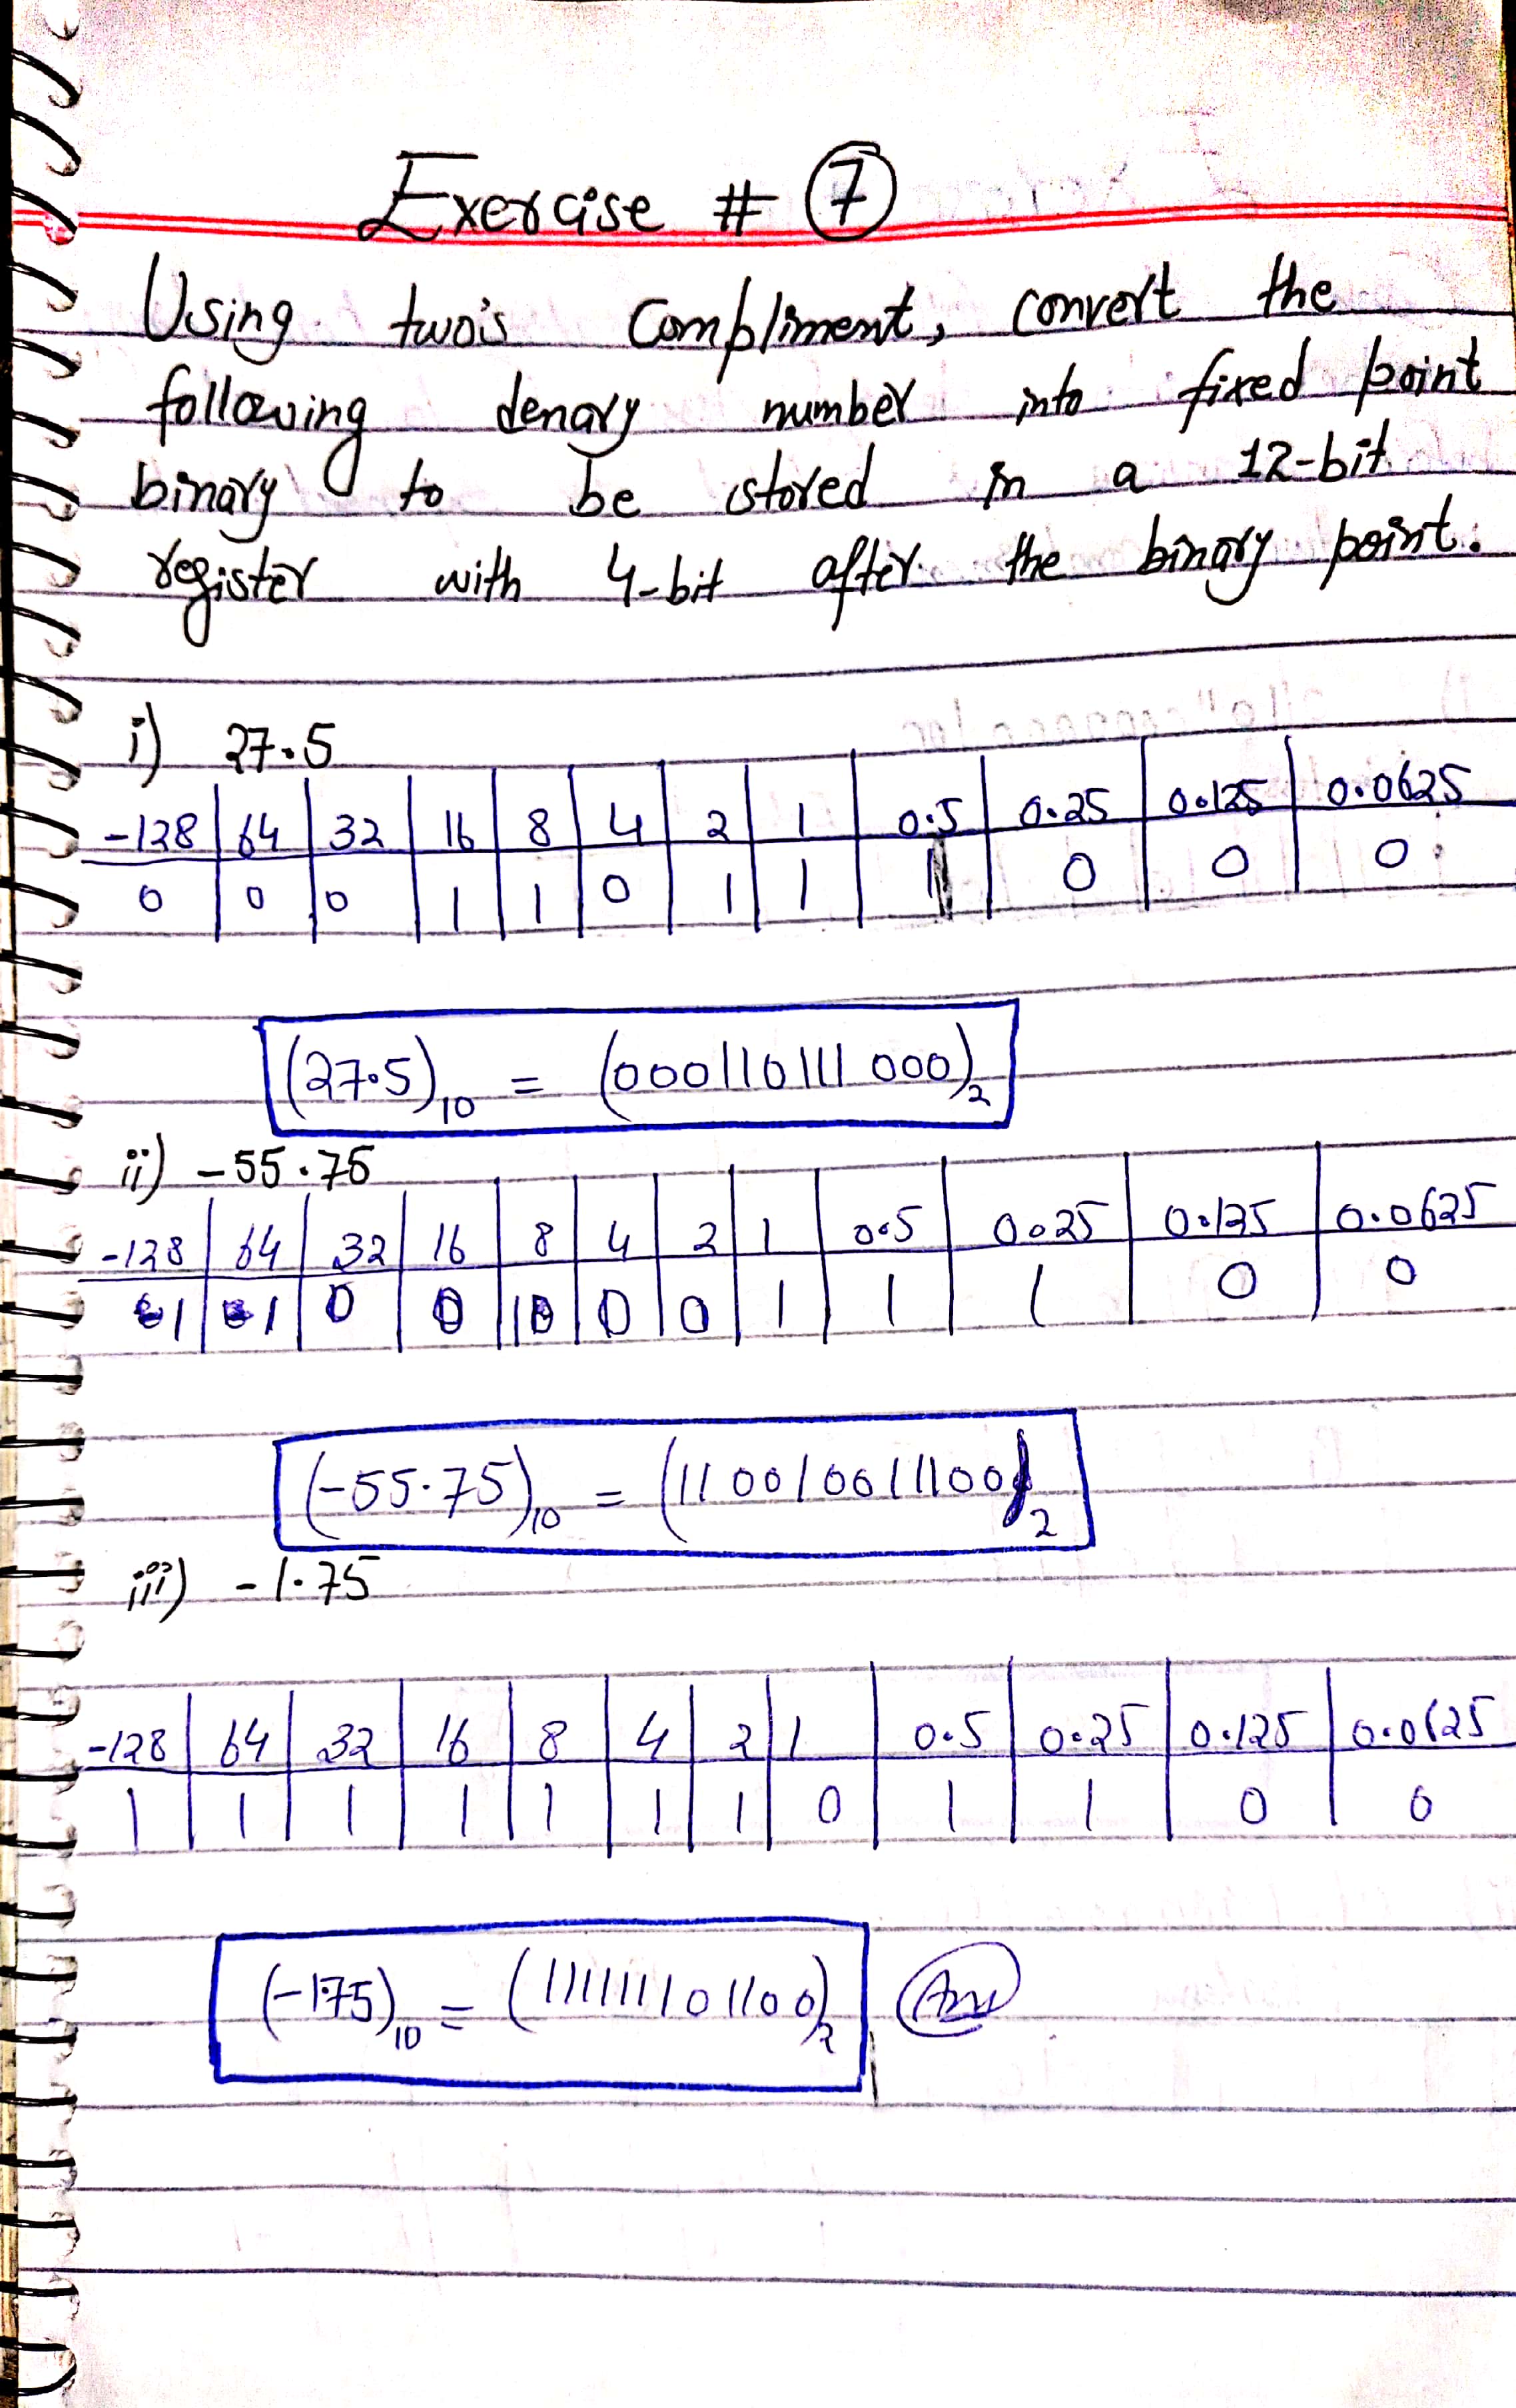 Exercise # 7
Using two's Compliment, convert the
following denary number into fixed point
binary to be stored in a 12-bit
register with 4-bit after the binary point.
i) 27.5
-128 64 32 16 8 4 2 1 0.5 0.25 0.125 0.0625
0 0 0 1 1 0 1 1 1 0 0 0
(27.5)10 = (000110111000)2
ii) -55.75
-128 64 32 16 8 4 2 1 0.5 0.25 0.125 0.0625
1 1 0 0 1 0 0 1 1 1 0 0
(-55.75)10 = (1100100111100)2
iii) -1.75
-128 64 32 16 8 4 2 1 0.5 0.25 0.125 0.0625
1 1 1 1 1 1 1 0 1 1 0 0
(-1.75)10 = (111111101100)2 Ans